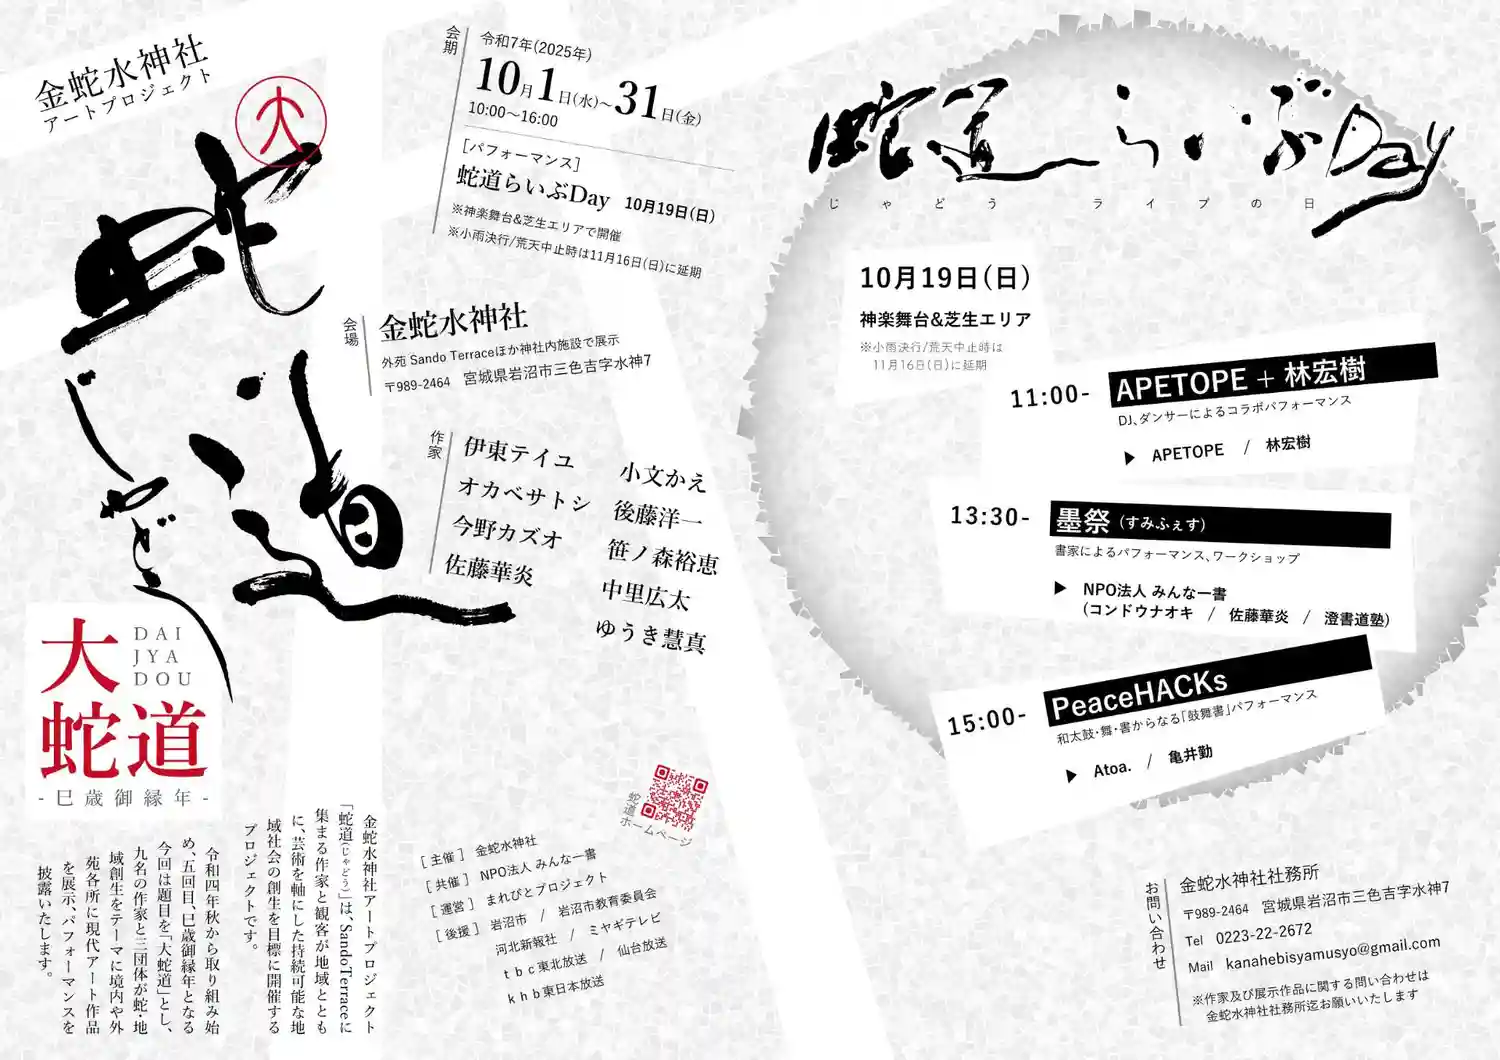 金蛇水神社
アートプロジェクト
大
蛇道
じゃどう
大
蛇道
DAI
JYA
DOU
- 巳歳御縁年 -
会期
令和7年(2025年)
10月1日(水)~31日(金)
10:00~16:00
[パフォーマンス]
蛇道らいぶDay 10月19日(日)
※神楽舞台&芝生エリアで開催
※小雨決行/荒天中止時は11月16日(日)に延期
会場
金蛇水神社
外苑 Sando Terraceほか神社内施設で展示
〒989-2464 宮城県岩沼市三色吉字水神7
作家
伊東テイユ
オカベサトシ
今野カズオ
佐藤華炎
小文かえ
後藤洋一
笹ノ森裕恵
中里広太
ゆうき慧真
金蛇水神社アートプロジェクト
「蛇道(じゃどう)」は、SandoTerraceに
集まる作家と観客が地域ととも
に、芸術を軸にした持続可能な地
域社会の創生を目標に開催する
プロジェクトです。
令和四年秋から取り組み始
め、五回目、巳歳御縁年となる
今回は題目を「大蛇道」とし、
九名の作家と三団体が蛇・地
域創生をテーマに境内や外
苑各所に現代アート作品
を展示、パフォーマンスを
披露いたします。
蛇道
ホームページ
[主催] 金蛇水神社
[共催] NPO法人 みんな一書
[運営] まれびとプロジェクト
[後援] 岩沼市 / 岩沼市教育委員会
河北新報社 / ミヤギテレビ
tbc東北放送 / 仙台放送
khb東日本放送
蛇道らいぶDay
じゃどう ライブの日
10月19日(日)
神楽舞台&芝生エリア
※小雨決行/荒天中止時は
11月16日(日)に延期
11:00- APETOPE + 林宏樹
DJ、ダンサーによるコラボパフォーマンス
▶ APETOPE / 林宏樹
13:30- 墨祭 (すみふぇす)
書家によるパフォーマンス、ワークショップ
▶ NPO法人 みんな一書
(コンドウナオキ / 佐藤華炎 / 澄書道塾)
15:00- PeaceHACKs
和太鼓・舞・書からなる「鼓舞書」パフォーマンス
▶ Atoa. / 亀井勤
お問い合わせ
金蛇水神社社務所
〒989-2464 宮城県岩沼市三色吉字水神7
Tel 0223-22-2672
Mail kanahebisyamusyo@gmail.com
※作家及び展示作品に関する問い合わせは
金蛇水神社社務所迄お願いいたします